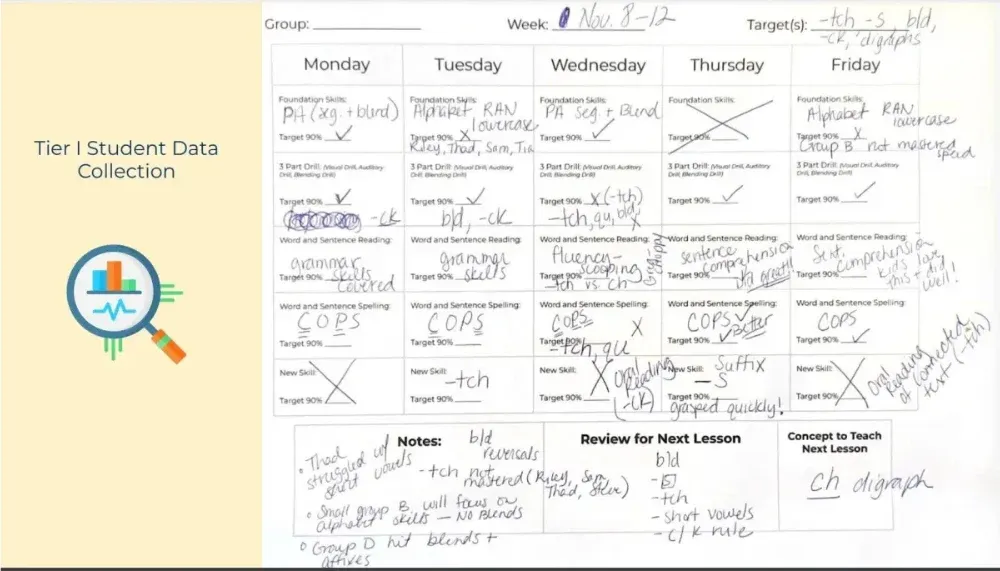 Tier I Student Data
Collection
Group:
Week: Nov. 8-12
Target(s): -tch -s, bld,
-ck, digraphs
Monday
Tuesday
Wednesday
Thursday
Friday
Foundation Skills:
PA (seg. + blend)
Target 90% ✓
Foundation Skills:
Alphabet RAN
lowercase
Target 90% X
Riley, Thad, Sam, Tia
Foundation Skills:
PA Seg. + Blend
Target 90% ✓
Foundation Skills:
Target 90%
Foundation Skills:
Alphabet RAN
lowercase
Target 90% X
Group B not mastered
speed
3 Part Drill: (Visual Drill, Auditory
Drill, Blending Drill)
Target 90% ✓
-ck
3 Part Drill: (Visual Drill, Auditory
Drill, Blending Drill)
Target 90% ✓
b/d, -ck
3 Part Drill: (Visual Drill, Auditory
Drill, Blending Drill)
Target 90% X (-tch)
-tch, qu, b/d,
X
3 Part Drill: (Visual Drill, Auditory
Drill, Blending Drill)
Target 90% ✓
3 Part Drill: (Visual Drill, Auditory
Drill, Blending Drill)
Target 90% ✓
Word and Sentence Reading:
grammar
Target 90% skills
covered
Word and Sentence Reading:
grammar
Target 90% skills
Word and Sentence Reading:
fluency-
Target 90% scooping
-tch vs. ch
choppy
Word and Sentence Reading:
sentence
comprehension
Target 90% did great!!
Word and Sentence Reading:
Sent.
comprehension
Target 90% kids love
this + did
well!
Word and Sentence Spelling:
COPS
Target 90%
Word and Sentence Spelling:
COPS
Target 90%
Word and Sentence Spelling:
COPS
X
Target 90%
-tch, qu
Word and Sentence Spelling:
COPS ✓
Target 90% ✓ Better
Word and Sentence Spelling:
COPS
Target 90% ✓
New Skill:
Target 90%
New Skill:
-tch
Target 90%
New Skill:
Target 90%
Oral
Reading
(-ck)
New Skill: Suffix
-s
Target 90%
grasped quickly!
New Skill:
Target 90%
Oral
Reading
of connected
text (-tch)
Notes:
b/d
reversals
• Thad
struggled w/
short vowels
-tch not
mastered (Riley, Sam,
Thad, Steve)
• Small group B will focus on
alphabet skills — No Blends
• Group D hit blends +
affixes
Review for Next Lesson
b/d
-s
-tch
- short vowels
- c/k rule
Concept to Teach
Next Lesson
ch digraph